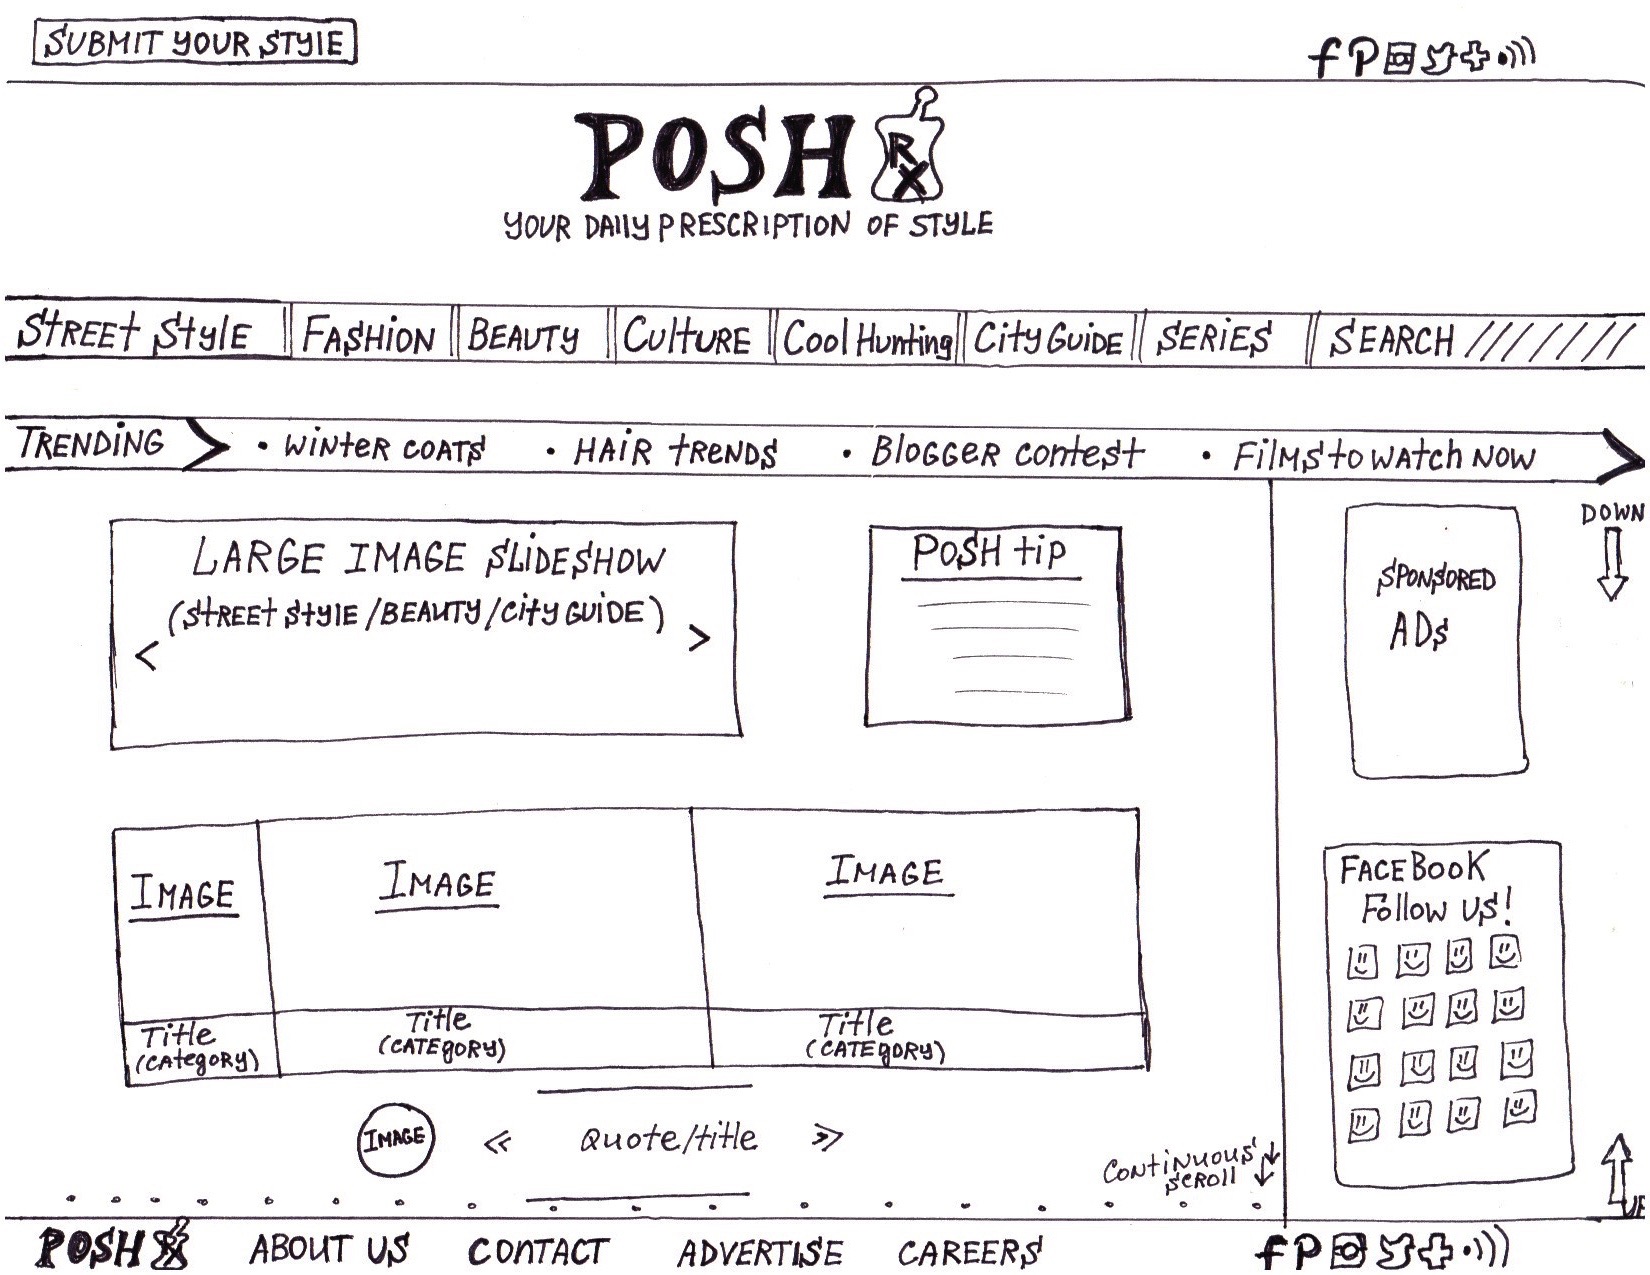 SUBMIT YOUR STYlE
POSH RX
YOUR DAIlY PRESCRIPTION OF STYLE
StREEt StylE FASHiON BEAUTY CultuRE Cool Hunting City GUiDE SERiES SEARCH
TRENDiNG • WiNtER COATS • HAiR tRENDS • BloGGER contest • FilMS to WAtch NOW
LARGE IMAGE SLiDESHOW
(StREEt StylE / BEAUTY / City GUiDE)
< >
POSH tip
SPONSORED
ADs
DOWN
IMAGE IMAGE IMAGE
Title Title Title
(CAtegoRY) (CATEgoRY) (CATEgoRY)
FACEBOOK
Follow US!
IMAGE << Quote/title >>
CONtiNUOUS
SCROll
POSH RX ABOUT US CONTACT ADVERTISE CAREERS